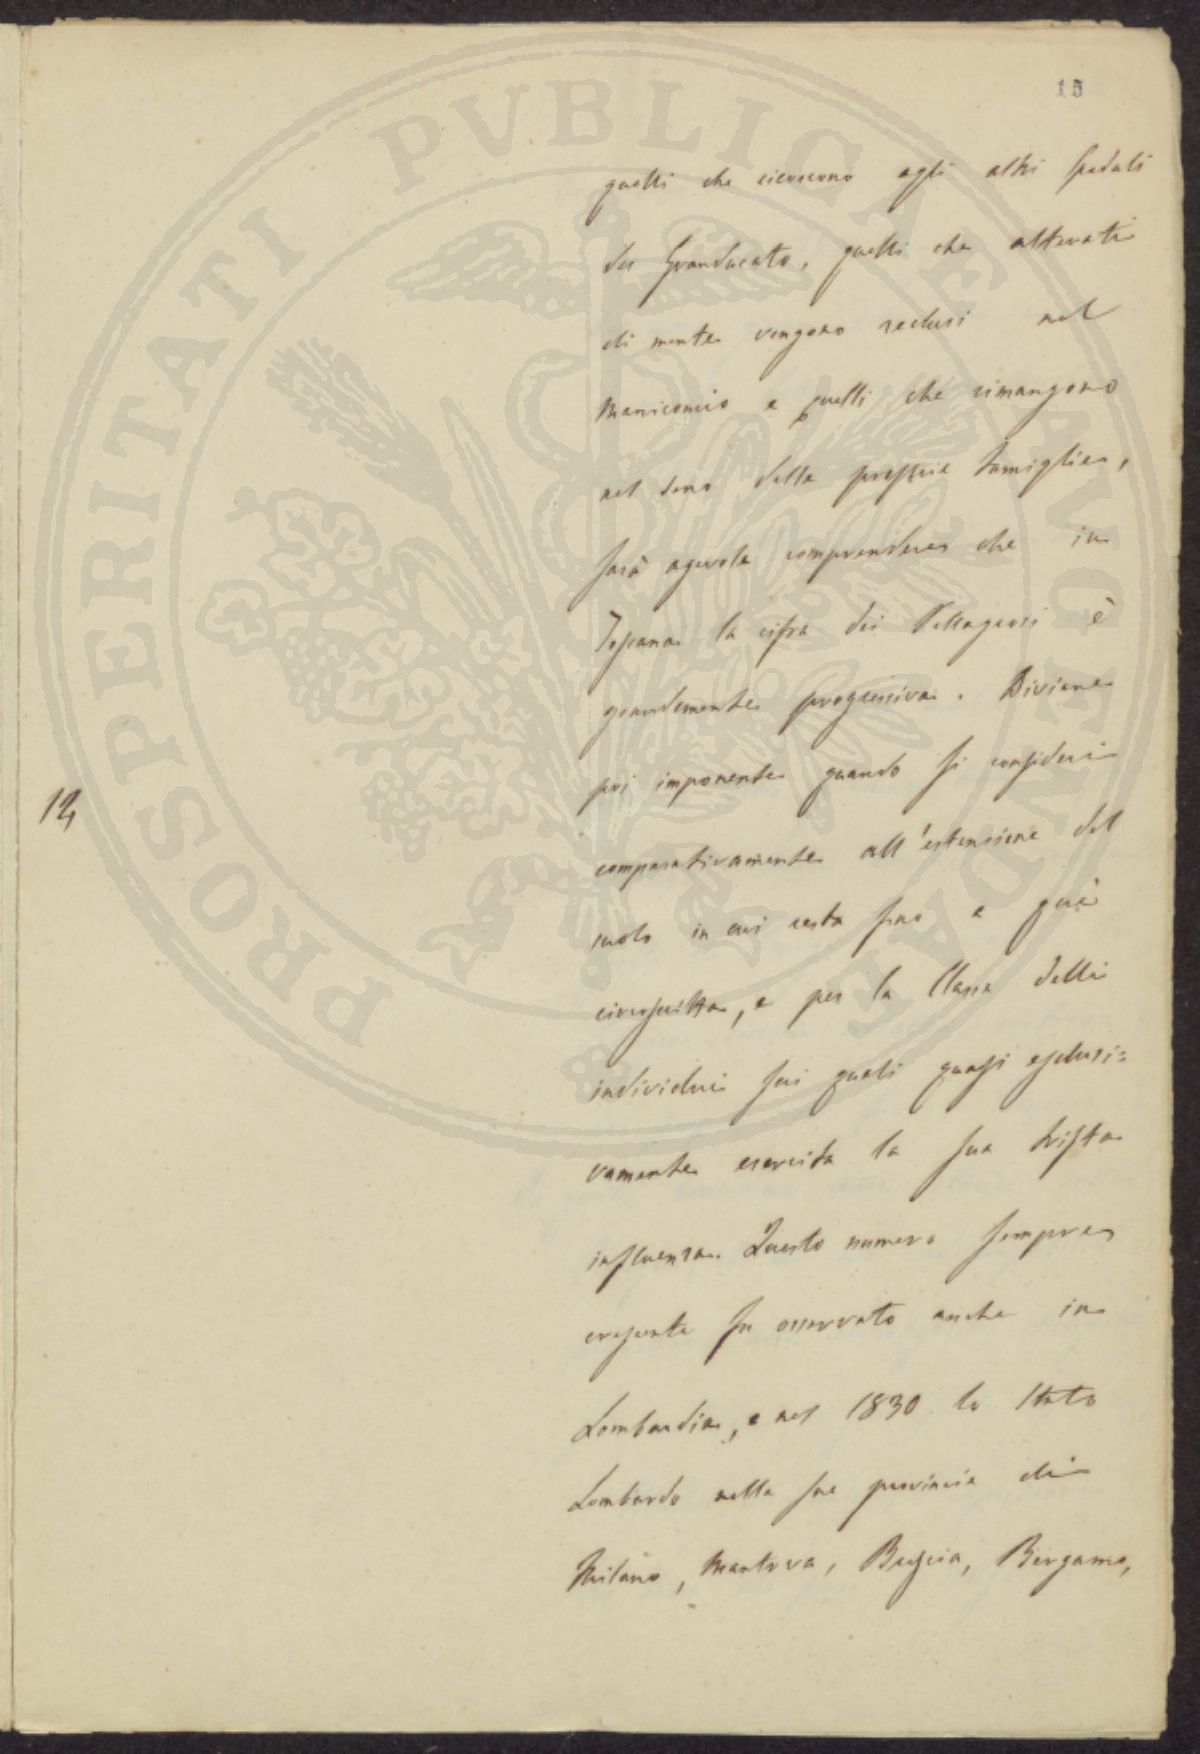 15
quelli che ricorrono agli altri spedali
del Granducato, quelli che alterati
di mente vengono reclusi nel
Manicomio e quelli che rimangono
nel seno della propria famiglia,
sarà agevole comprendere che in
Toscana la cifra dei Pellagrosi è
grandemente progressiva. Diviene
poi imponente quando si consideri
12
comparativamente all'estensione del
suolo in cui resta fino a qui
circoscritta, e per la Classe delli
individui sui quali quasi esclusi=
vamente esercita la sua trista
influenza. Questo numero sempre
crescente fu osservato anche in
Lombardia, e nel 1830 lo Stato
Lombardo nelle sue provincie di
Milano, Mantova, Brescia, Bergamo,
PROSPERITATI PVBLICAE AVGENDAE